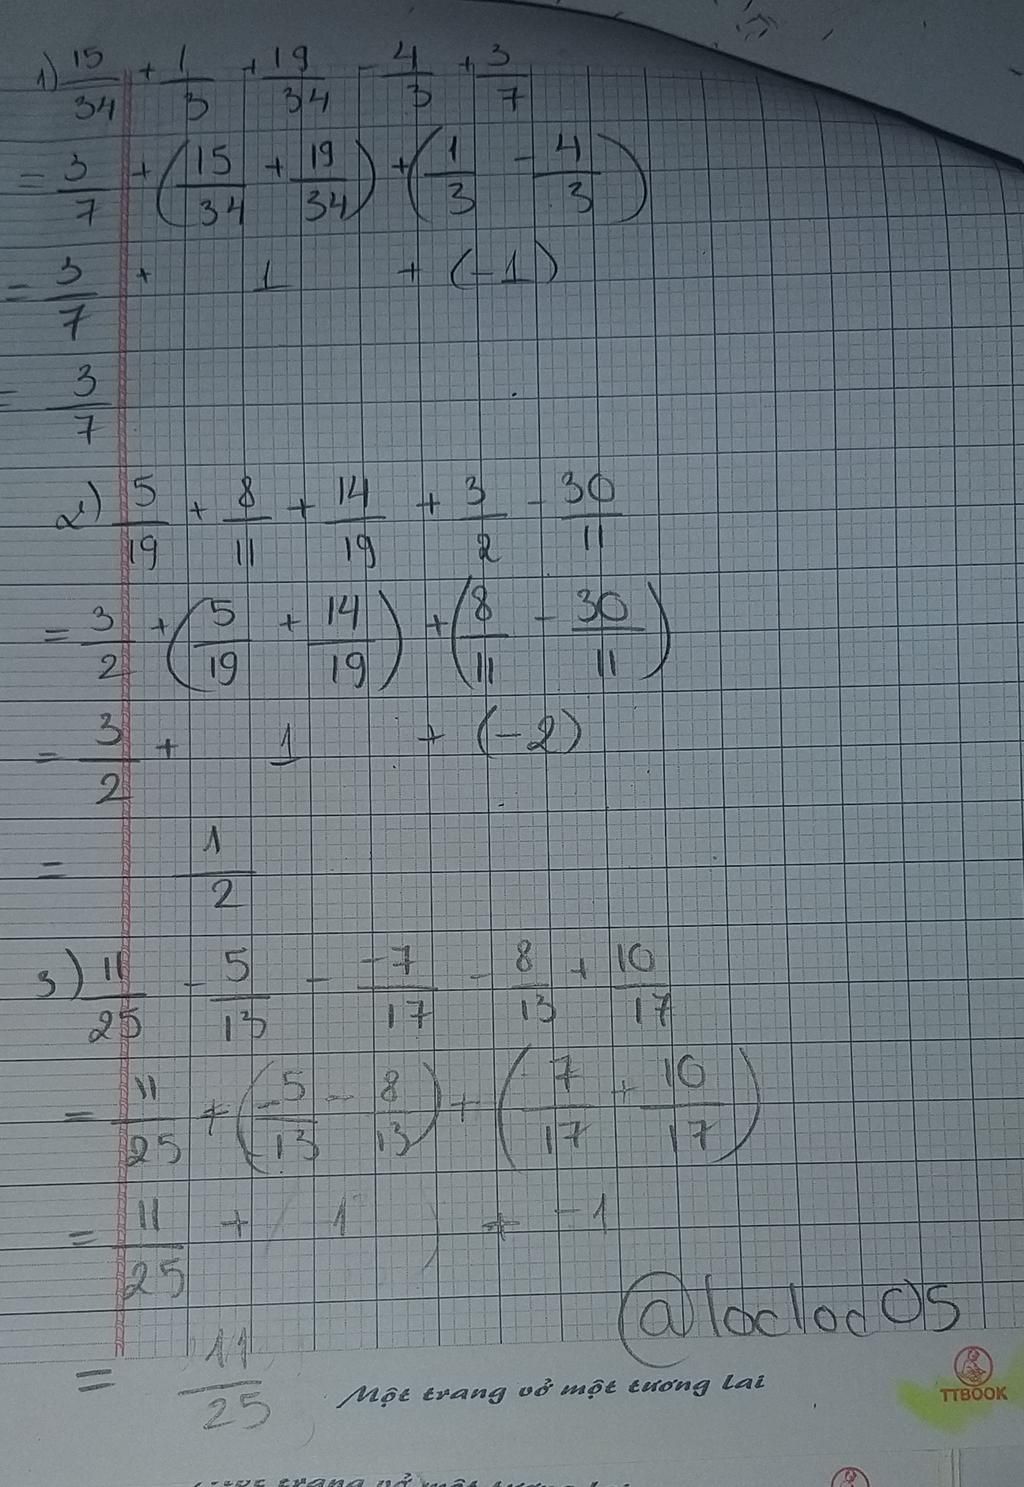 1) 15/34 + 1/3 + 19/34 - 4/3 + 3/7
= 3/7 + (15/34 + 19/34) + (1/3 - 4/3)
= 3/7 + 1 + (-1)
= 3/7
2) 5/19 + 8/11 + 14/19 + 3/2 - 30/11
= 3/2 + (5/19 + 14/19) + (8/11 - 30/11)
= 3/2 + 1 + (-2)
= 1/2
3) 11/25 - 5/13 - -7/17 - 8/13 + 10/17
= 11/25 + (-5/13 - 8/13) + (7/17 + 10/17)
= 11/25 + ( 1 ) + -1
@locloc05
= 11/25
Một trang vở một tương lai
TTBOOK